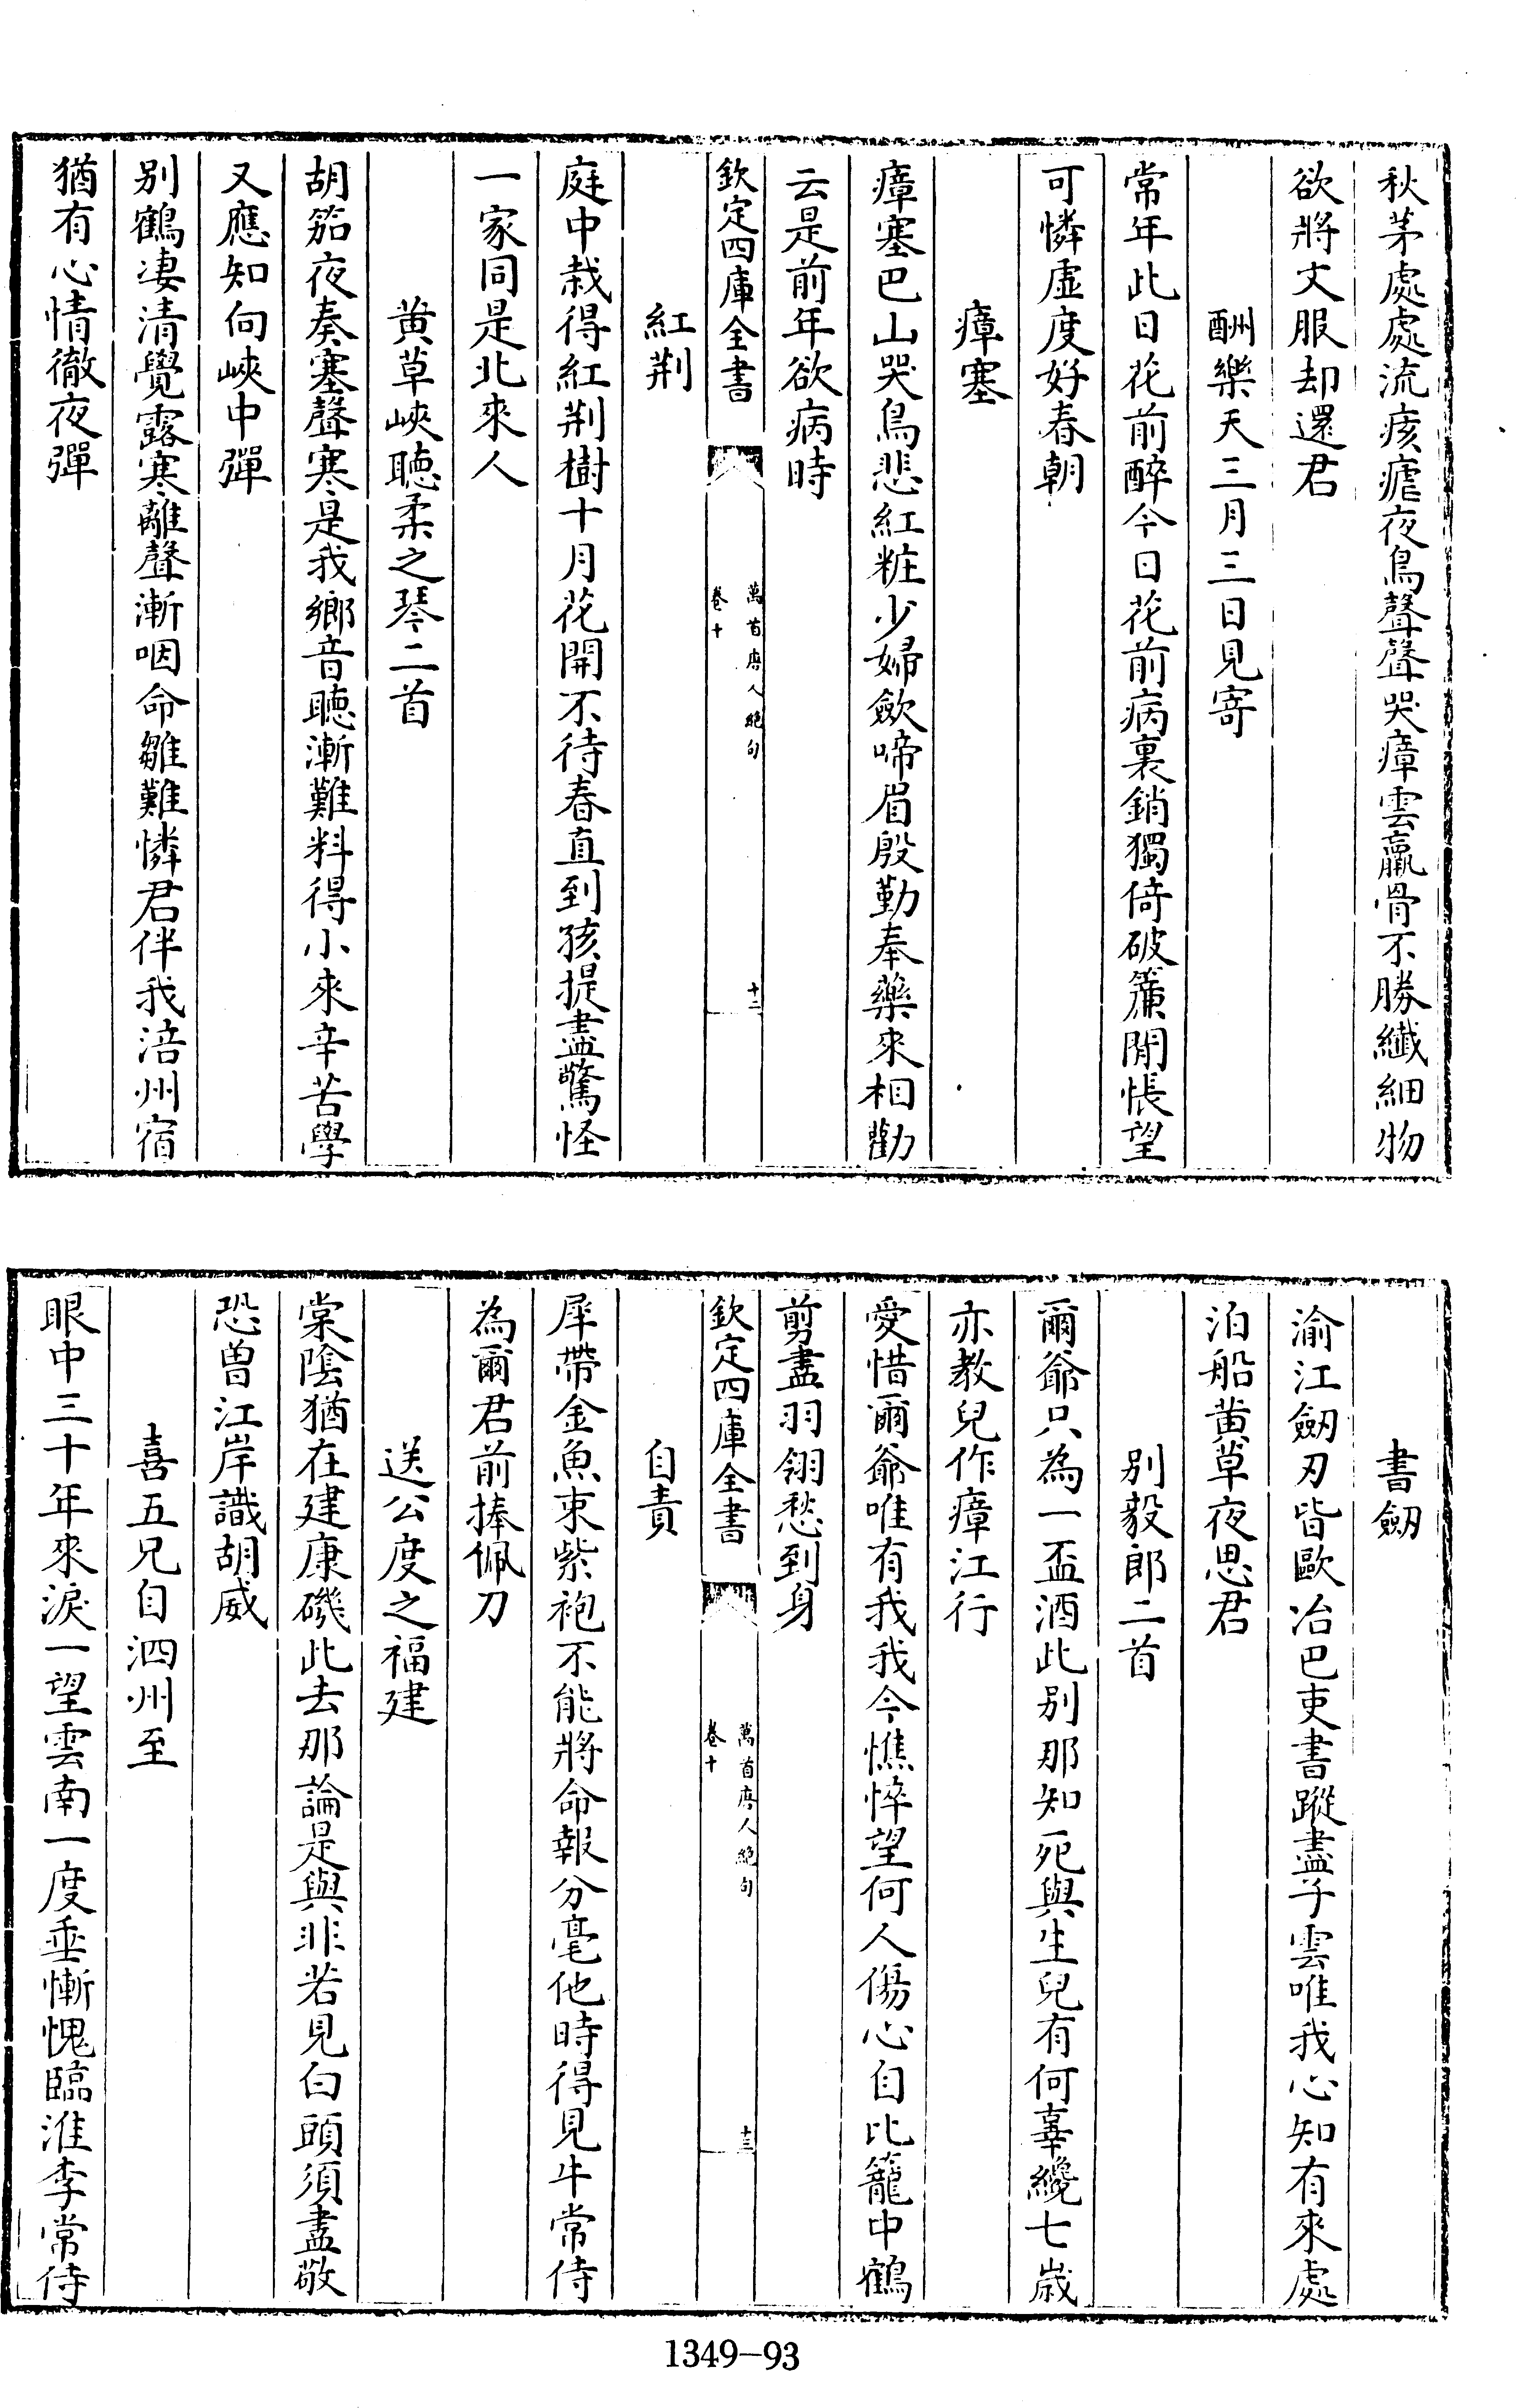 秋茅處處流痎瘧夜鳥聲聲哭瘴雲羸骨不勝纖細物
欲將文服却還君
酬樂天三月三日見寄
常年此日花前醉今日花前病裏銷獨倚破簾閒悵望
可憐虚度好春朝
瘴塞
瘴塞巴山哭鳥悲紅粧少婦歛啼眉殷勤奉藥來相勸
云是前年欲病時
欽定四庫全書
萬首唐人絶句
卷十
十二
紅荆
庭中栽得紅荆樹十月花開不待春直到孩提盡驚怪
一家同是北來人
黄草峽聽柔之琴二首
胡笳夜奏塞聲寒是我鄉音聽漸難料得小來辛苦學
又應知向峽中彈
别鶴凄清覺露寒離聲漸咽命雛難憐君伴我涪州宿
猶有心情徹夜彈
書劒
渝江劒刃皆歐冶巴吏書蹤盡子雲唯我心知有來處
泊船黄草夜思君
别毅郎二首
爾爺只為一盃酒此别那知死與生兒有何辜纔七歳
亦教兒作瘴江行
愛惜爾爺唯有我我今憔悴望何人傷心自比籠中鶴
剪盡羽翎愁到身
欽定四庫全書
萬首唐人絶句
卷十
十三
自責
犀帶金魚束紫袍不能將命報分毫他時得見牛常侍
為爾君前捧佩刀
送公度之福建
棠陰猶在建康磯此去那論是與非若見白頭須盡敬
恐曽江岸識胡威
喜五兄自泗州至
眼中三十年來淚一望雲南一度垂慚愧臨淮李常侍
1349-93